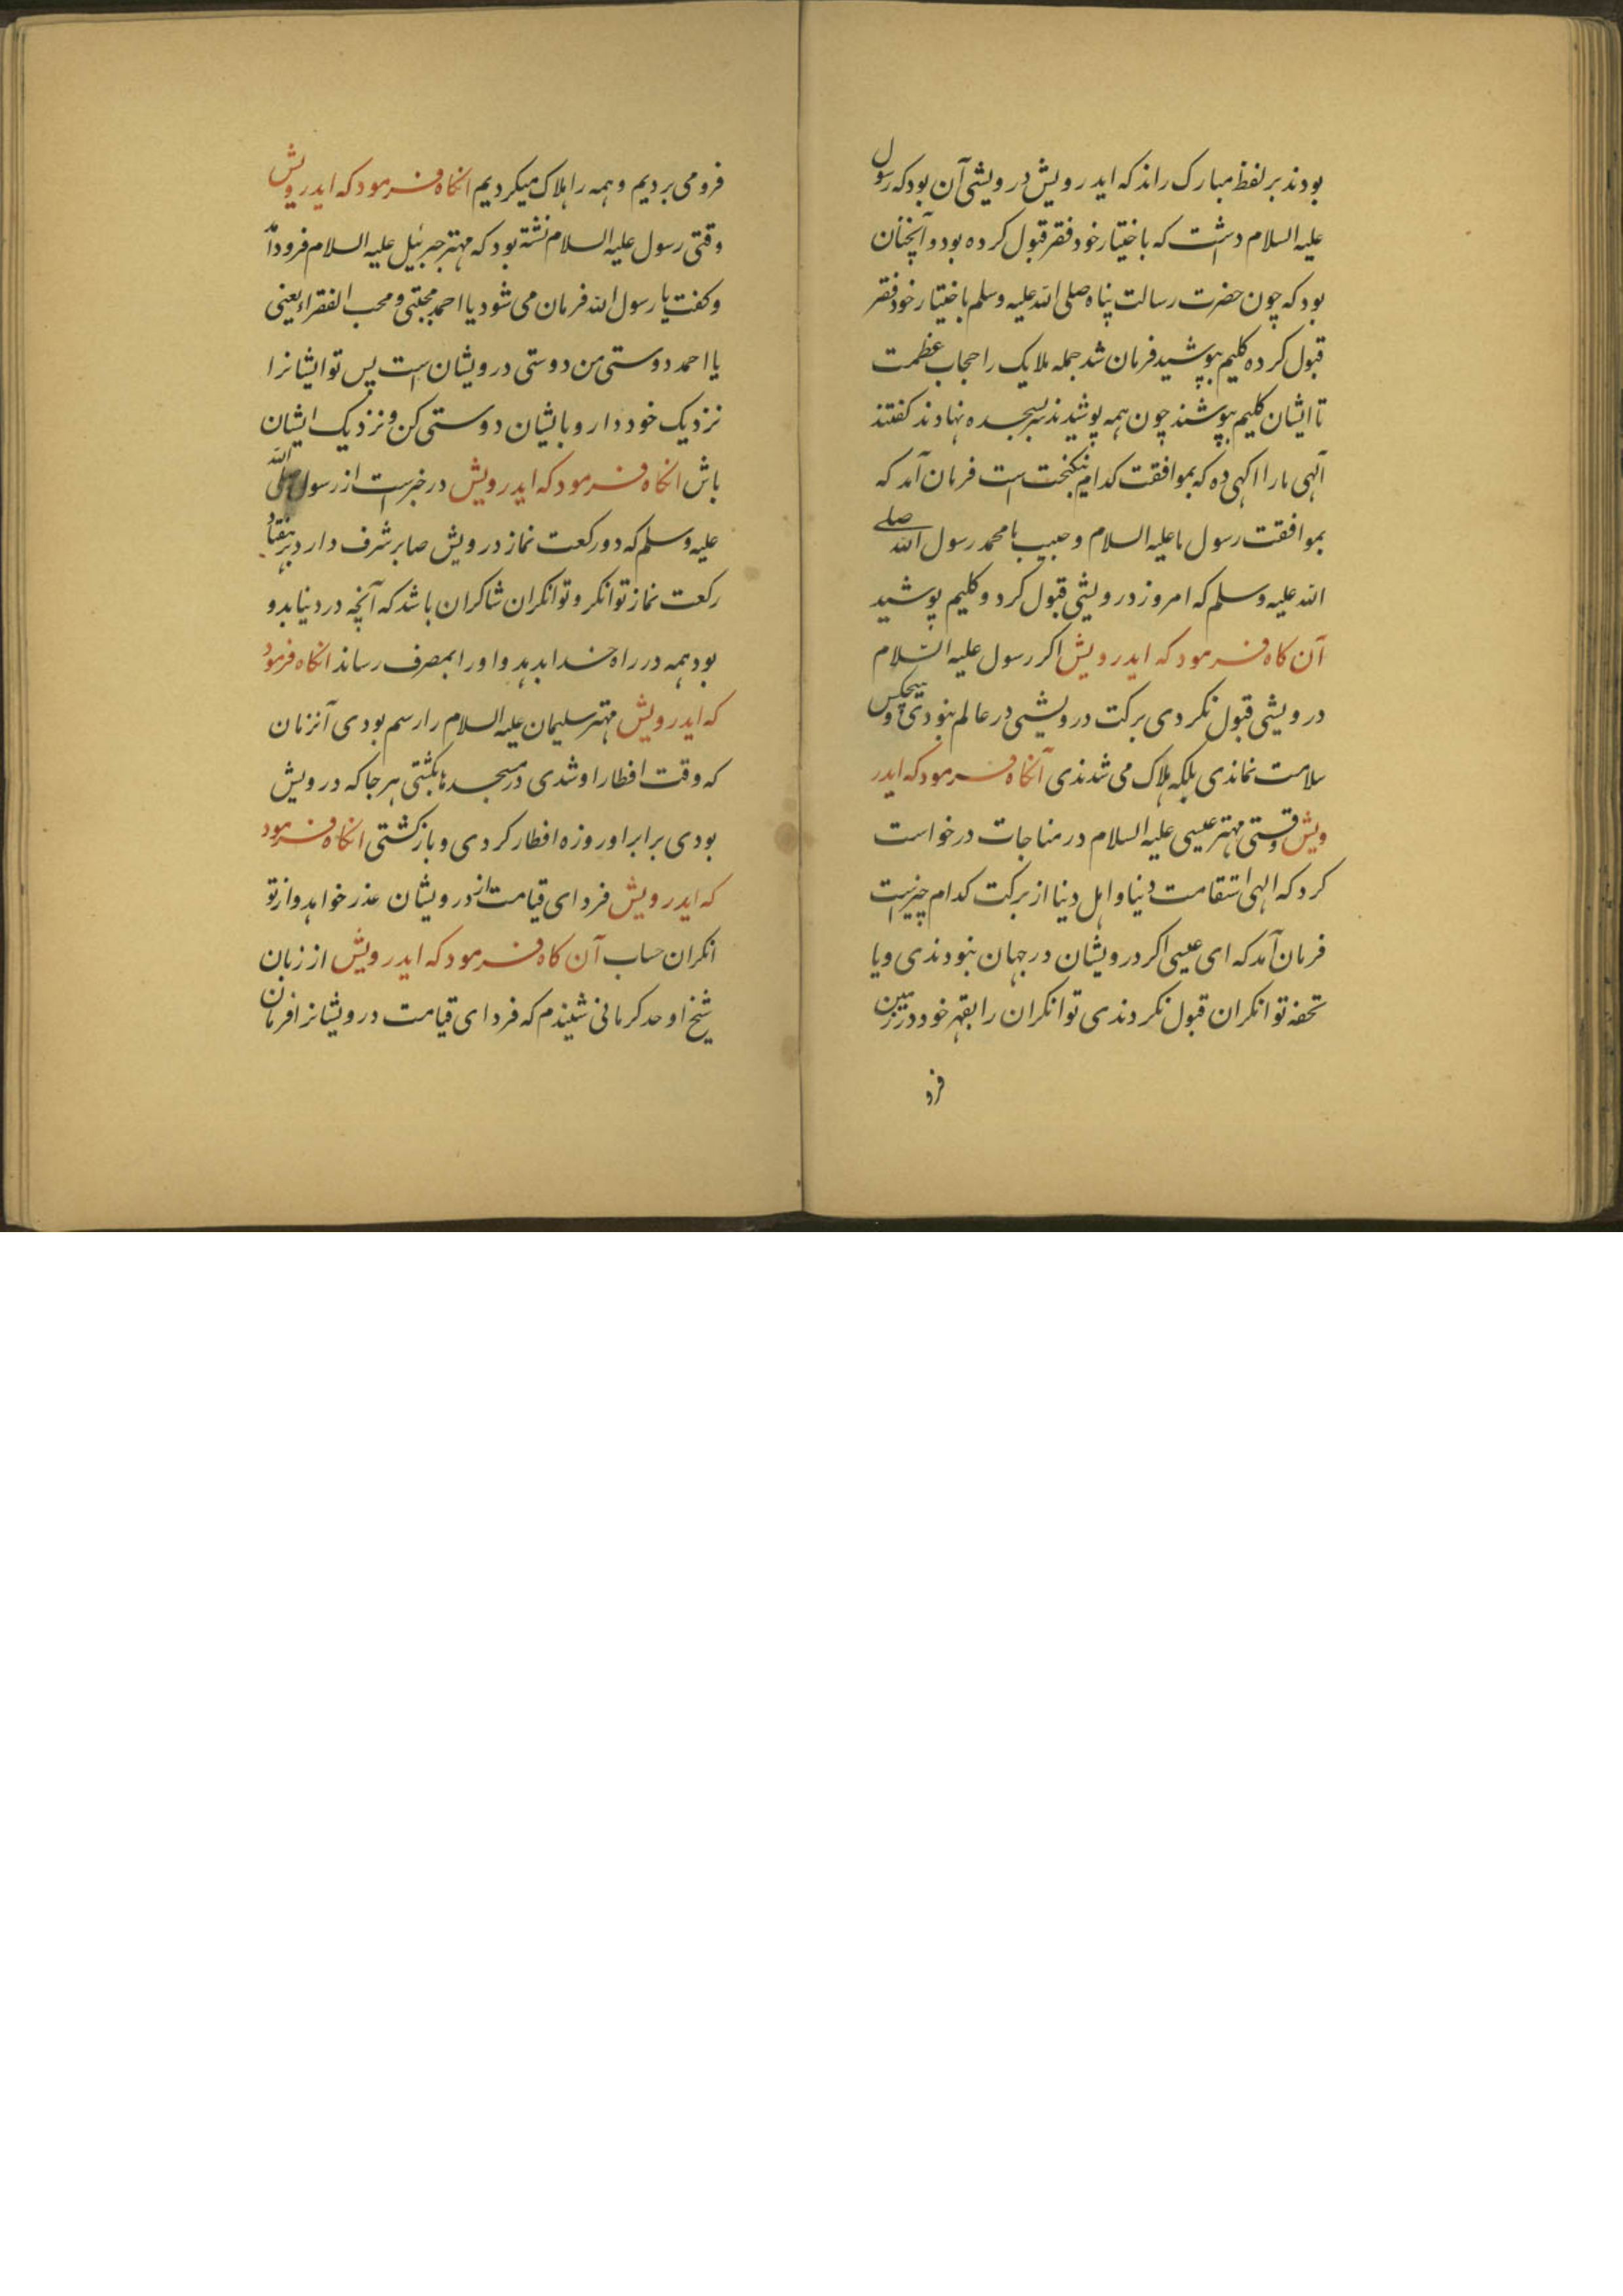 بودند بر لفظ مبارک راند که ایدرویش درویشی آن بود که رسول
علیه السلام دشت که باختیار خود فقر قبول کرده بود و آنچنان
بود که چون حضرت رسالت پناه صلی الله علیه وسلم باختیار خود فقر
قبول کرده کلیم بپوشید فرمان شد جمله ملایک را حجاب عظمت
تا ایشان کلیم بپوشند چون همه پوشیدند سر بسجده نهادند کفتند
آلهی ما را اکهی ده که بموافقت کدام نیکبخت است فرمان آمد که
بموافقت رسول ما علیه السلام و حبیب ما محمد رسول الله صلی
الله علیه وسلم که امروز درویشی قبول کرد و کلیم پوشید
آن کاه فرمود که ایدرویش اکر رسول علیه السلام
درویشی قبول نکردی برکت درویشی در عالم نبودی و هیچکس
سلامت نماندی بلکه هلاک می شدندی آنکاه فرمود که ایدر
ویش وقتی مهتر عیسی علیه السلام در مناجات درخواست
کرد که الهی استقامت دنیا و اهل دنیا از برکت کدام چیزست
فرمان آمد که ای عیسی اکر درویشان در جهان نبودندی و یا
تحفه توانکران قبول نکردندی توانکران را بقهر خود در زمین
فرو
فرو می بردیم و همه را هلاک میکردیم انکاه فرمود که ایدرویش
وقتی رسول علیه السلام نشته بود که مهتر جبرئیل علیه السلام فرود آمد
و کفت یا رسول الله فرمان می شود یا احمد مجتبی و محب الفقراء یعنی
یا احمد دوستی من دوستی درویشان است پس تو ایشانرا
نزدیک خود دار و با یشان دوستی کن و نزدیک ایشان
باش انکاه فرمود که ایدرویش در خبرست از رسول صلی الله
علیه وسلم که دو رکعت نماز درویش صابر شرف دارد بر هفتاد
رکعت نماز توانکر و توانکران شاکران باشد که آنچه در دنیا بدو
بود همه در راه خدا بدهد و او را بمصرف رساند انکاه فرمود
که ایدرویش مهتر سلیمان علیه السلام را رسم بودی آنزمان
که وقت افطار او شدی در مسجدها بکشتی هر جا که درویش
بودی برابر او روزه افطار کردی و باز کشتی انکاه فرمود
که ایدرویش فردای قیامت از درویشان عذر خواهد و از تو
انکران حساب آن کاه فرمود که ایدرویش از زبان
شیخ اوحد کرمانی شنیدم که فردای قیامت درویشانرا فرمان